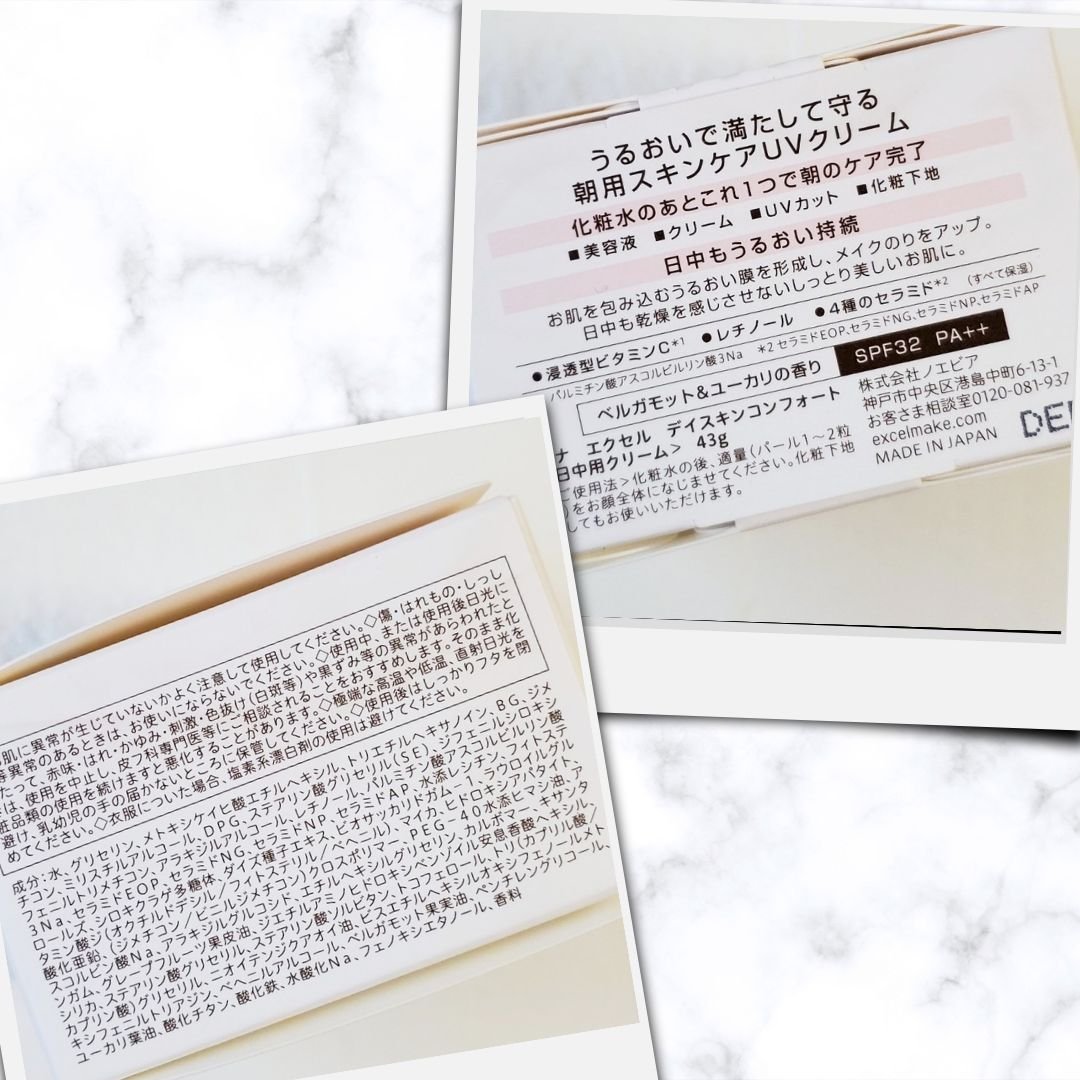 うるおいで満たして守る
朝用スキンケアUVクリーム
化粧水のあとこれ1つで朝のケア完了
■美容液 ■クリーム ■UVカット ■化粧下地
日中もうるおい持続
お肌を包み込むうるおい膜を形成し、メイクのりをアップ。
日中も乾燥を感じさせないしっとり美しいお肌に。
●浸透型ビタミンC*1 ●レチノール ●4種のセラミド*2 (すべて保湿)
パルミチン酸アスコルビルリン酸3Na *2 セラミドEOP、セラミドNG、セラミドNP、セラミドAP
ベルガモット&ユーカリの香り
SPF32 PA++
ナ エクセル デイスキンコンフォート
日中用クリーム> 43g
ご使用法>化粧水の後、適量(パール1〜2粒
)をお顔全体になじませてください。化粧下地
してもお使いいただけます。
株式会社ノエビア
神戸市中央区港島中町6-13-1
お客さま相談室0120-081-937
excelmake.com
MADE IN JAPAN
肌に異常が生じていないかよく注意して使用してください。◇傷・はれもの・しっし
等異常のあるときは、お使いにならないでください。◇使用中、または使用後日光に
たって、赤味・はれ・かゆみ・刺激・色抜け(白斑等)や黒ずみ等の異常があらわれたと
は、使用を中止し、皮フ科専門医等にご相談されることをおすすめします。そのまま化
粧品類の使用を続けますと悪化することがあります。◇極端な高温や低温、直射日光を
避け、乳幼児の手の届かないところに保管してください。◇使用後はしっかりフタを閉
めてください。◇衣服についた場合、塩素系漂白剤の使用は避けてください。
成分:水、グリセリン、メトキシケイヒ酸エチルヘキシル、トリエチルヘキサノイン、BG、ジメ
チコン、ミリスチルアルコール、DPG、ステアリン酸グリセリル(SE)、ジフェニルシロキシ
フェニルトリメチコン、アラキジルアルコール、レチノール、パルミチン酸アスコルビルリン酸
3Na、セラミドEOP、セラミドNG、セラミドNP、セラミドAP、水添レシチン、フィトステ
ロールズ、シロキクラゲ多糖体、ダイズ種子エキス、ビオサッカリドガム-1、ラウロイルグル
タミン酸ジ(オクチルドデシル/フィトステリル/ベヘニル)、マイカ、ヒドロキシアパタイト、
酸化亜鉛、(ジメチコン/ビニルジメチコン)クロスポリマー、PEG-40水添ヒマシ油、ア
スコルビン酸Na、アラキジルグルコシド、エチルヘキシルグリセリン、カルボマー、キサンタ
ンガム、グレープフルーツ果皮油、ジエチルアミノヒドロキシベンゾイル安息香酸ヘキシル、
シリカ、ステアリン酸グリセリル、ステアリン酸ソルビタン、トコフェロール、トリ(カプリル酸/
カプリン酸)グリセリル、ニオイテンジクアオイ油、ビスエチルヘキシルオキシフェノールメト
キシフェニルトリアジン、ベヘニルアルコール、ベルガモット果実油、ペンチレングリコール、
ユーカリ葉油、酸化チタン、酸化鉄、水酸化Na、フェノキシエタノール、香料